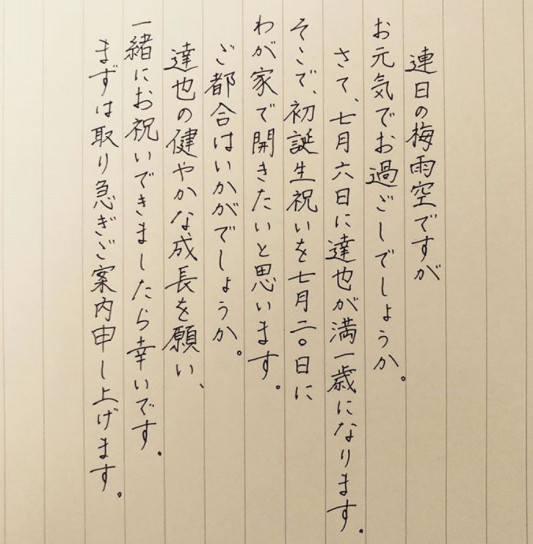 連日の梅雨空ですが
お元気でお過ごしでしょうか。
さて、七月六日に達也が満一歳になります。
そこで、初誕生祝いを七月二〇日に
わが家で開きたいと思います。
ご都合はいかがでしょうか。
達也の健やかな成長を願い、
一緒にお祝いできましたら幸いです。
まずは取り急ぎご案内申し上げます。